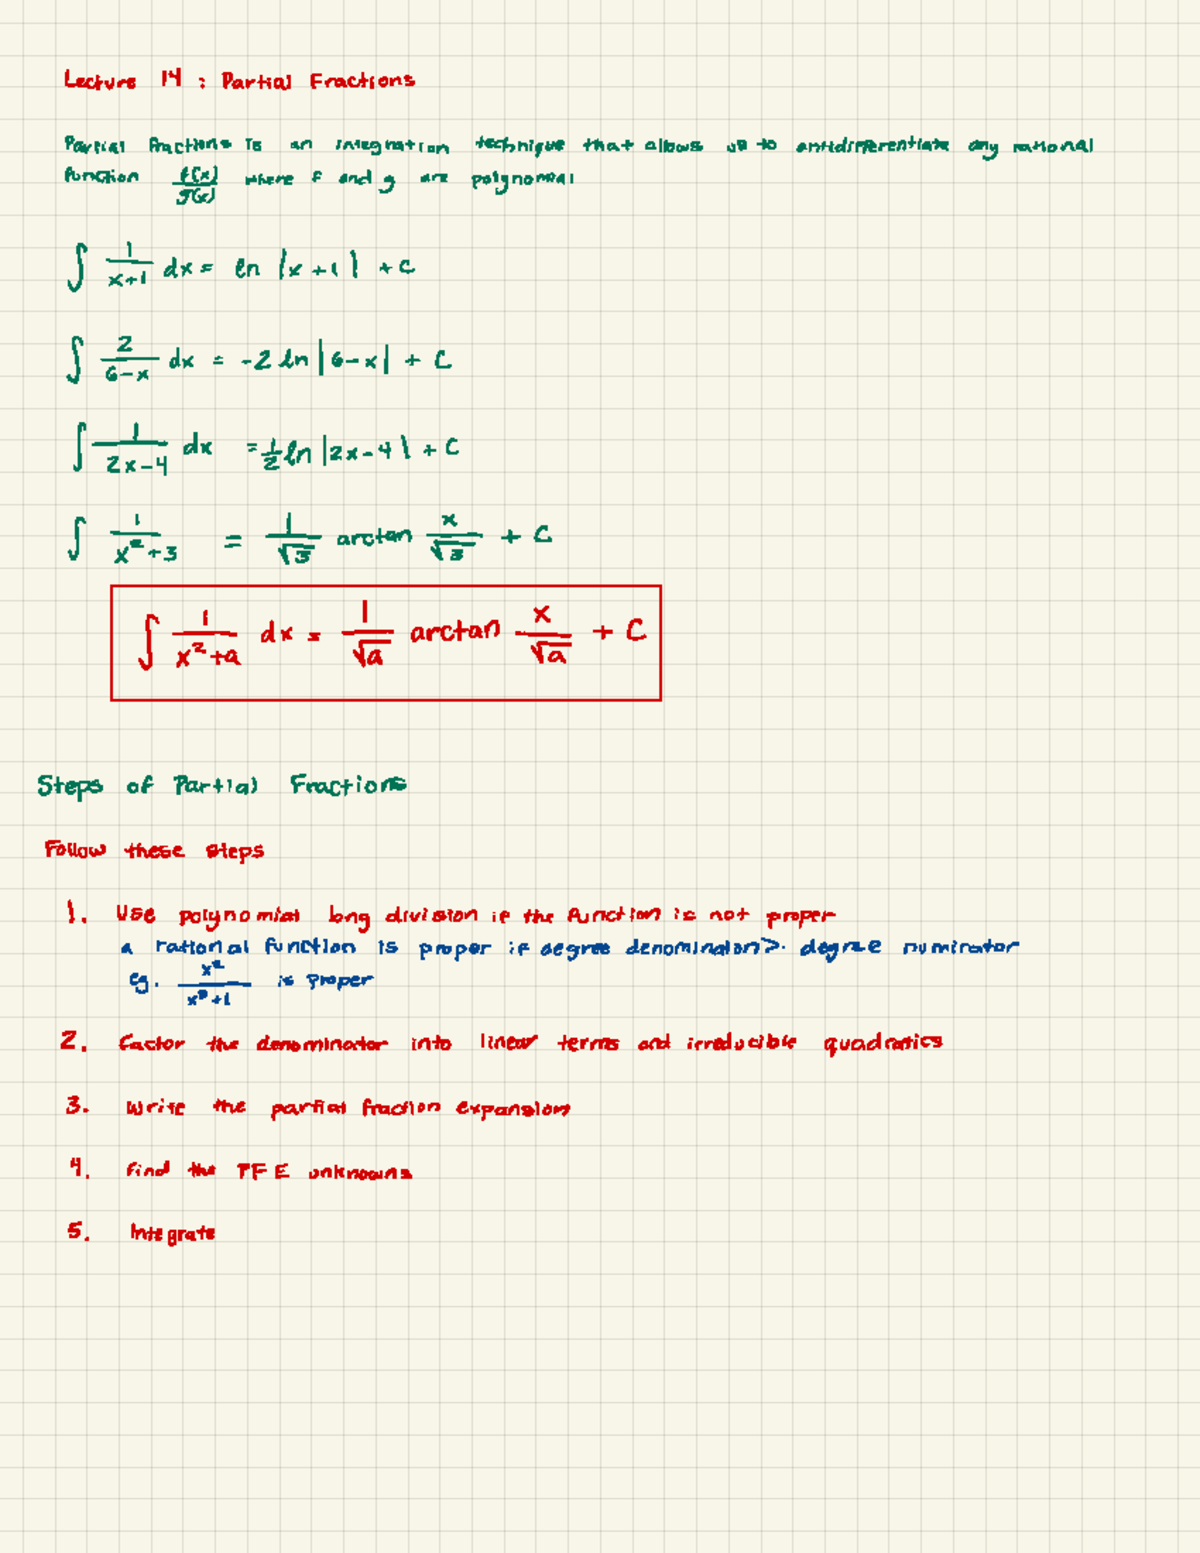 Lecture 14 : Partial Fractions
Partial fractions is an integration technique that allows us to antidifferentiate any rational
function f(x)/g(x) where f and g are polynomial
∫ 1/(x+1) dx = ln |x+1| + C
∫ 2/(6-x) dx = -2 ln |6-x| + C
∫ 1/(2x-4) dx = 1/2 ln |2x-4| + C
∫ 1/(x²+3) = 1/√3 arctan x/√3 + C
∫ 1/(x²+a) dx = 1/√a arctan x/√a + C
Steps of Partial Fractions
Follow these steps
1. Use polynomial long division if the function is not proper
a rational function is proper if degree denominator > degree numirator
eg. x²/(x³+1) is proper
2. factor the denominator into linear terms and irreducible quadratics
3. Write the partial fraction expansion
4. Find the PFE unknowns
5. Integrate